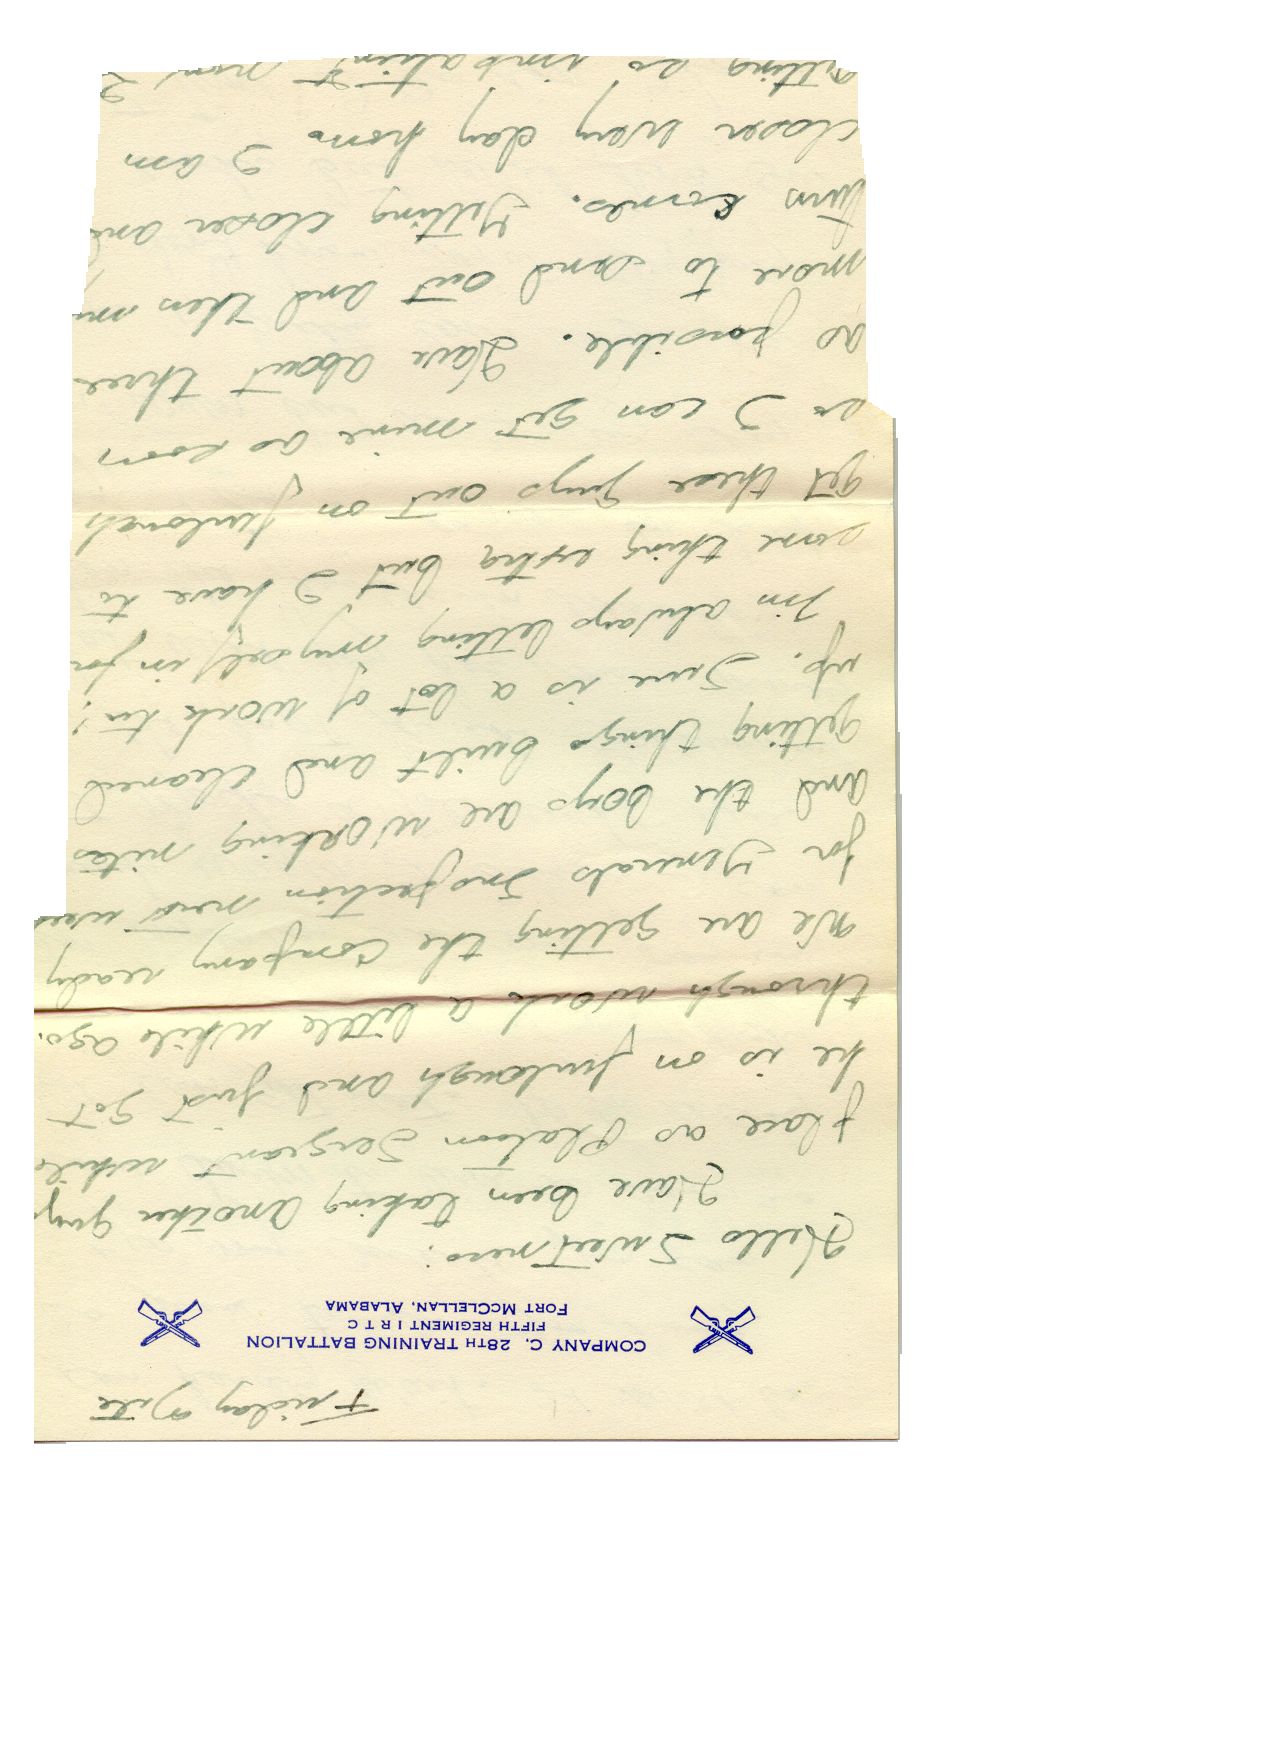 Friday Nite
COMPANY C, 28TH TRAINING BATTALION
FIFTH REGIMENT I R T C
FORT MCCLELLAN, ALABAMA
Hello Sweetness:
Have been taking another guys
place as Platoon Sergeant while
he is on furlough and just got
through work a little while ago.
We are getting the company ready
for Generals Inspection next wee
and the boys are working nites
getting things built and cleaned
up. Sure is a lot of work tu
I'm always letting myself in for
some thing extra but I have to
get these guys out on furlough
so I can get mine as soon
as possible. Have about three
more to send out and then my
turn comes. Getting closer and
closer every day hon. I am
getting so impatient now I